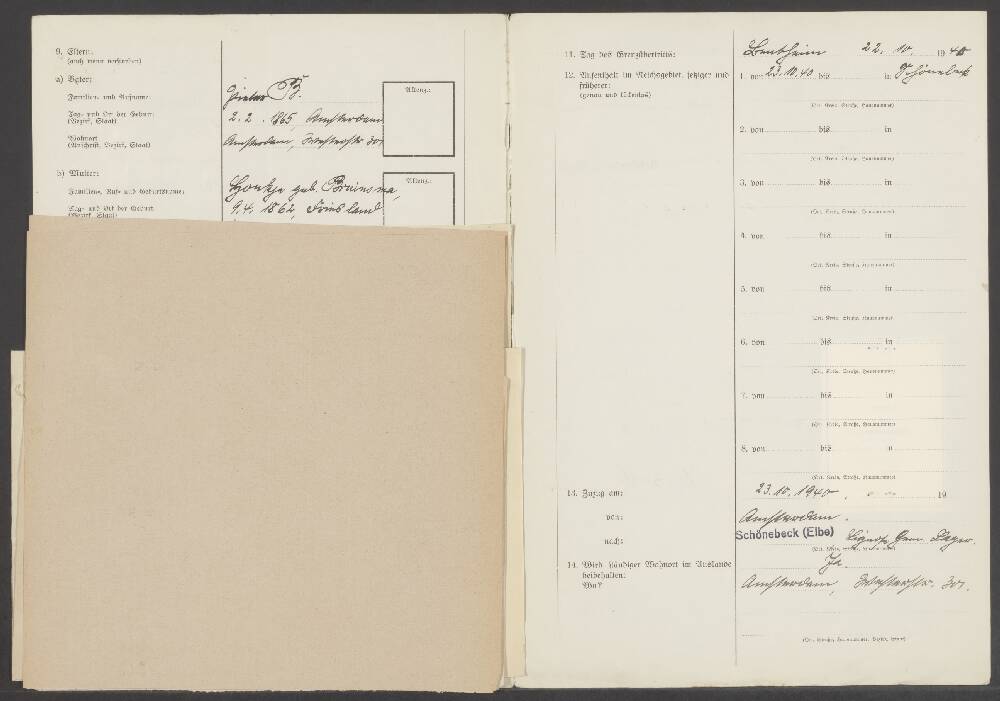 9. Eltern:
(auch wenn verstorben)
a) Vater:
Familien- und Rufname:
Pieter B.
Aktenz.:
Tag- und Ort der Geburt:
(Bezirk, Staat)
2.2.1865, Amsterdam
Wohnort
(Anschrift, Bezirk, Staat)
Amsterdam, Westerstr 301
b) Mutter:
Aktenz.:
Familien-, Ruf- und Geburtsname:
geb. Bruinsma,
Tag- und Ort der Geburt
(Bezirk, Staat)
9.4.1862, Friesland
11. Tag des Grenzübertritts:
Bentheim 22. 10. 1940
12. Aufenthalt im Reichsgebiet, jetziger und
früherer:
(genau und lückenlos)
1. von 23.10.40 bis in Schönebeck
(Ort, Kreis, Straße, Hausnummer)
2. von bis in
(Ort, Kreis, Straße, Hausnummer)
3. von bis in
(Ort, Kreis, Straße, Hausnummer)
4. von bis in
(Ort, Kreis, Straße, Hausnummer)
5. von bis in
(Ort, Kreis, Straße, Hausnummer)
6. von bis in
(Ort, Kreis, Straße, Hausnummer)
7. von bis in
(Ort, Kreis, Straße, Hausnummer)
8. von bis in
(Ort, Kreis, Straße, Hausnummer)
13. Zuzug am:
23.10.1940 19
von:
Amsterdam.
nach:
Schönebeck (Elbe) Lager.
14. Wird ständiger Wohnort im Auslande
beibehalten:
Ja.
Wo?
Amsterdam, Westerstr. 301.
(Ort, Straße, Hausnummer, Bezirk, Staat)